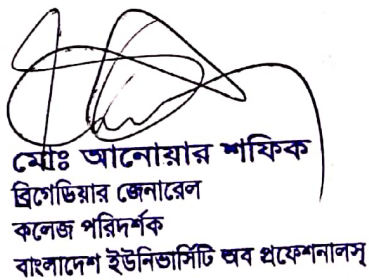 মোঃ আনোয়ার শফিক
ব্রিগেডিয়ার জেনারেল
কলেজ পরিদর্শক
বাংলাদেশ ইউনিভার্সিটি অব প্রফেশনালস্